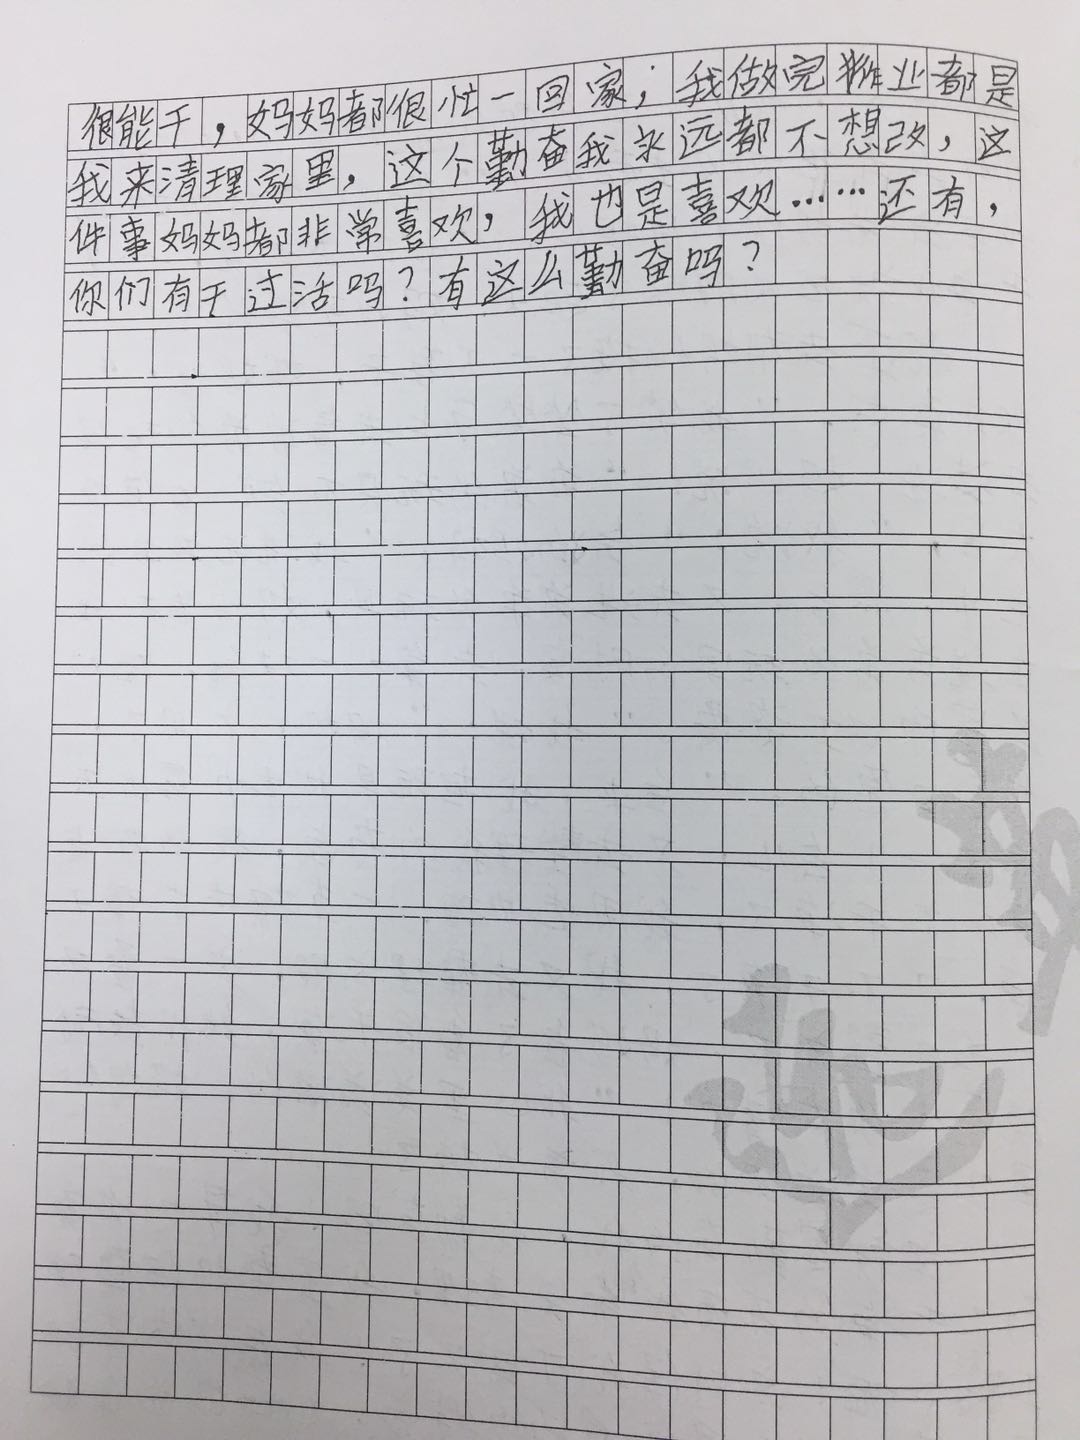 很能干，妈妈都很忙一回家，我做完作业都是
我来清理家里，这个勤奋我永远都不想改，这
件事妈妈都非常喜欢，我也是喜欢……还有，
你们有干过活吗？有这么勤奋吗？